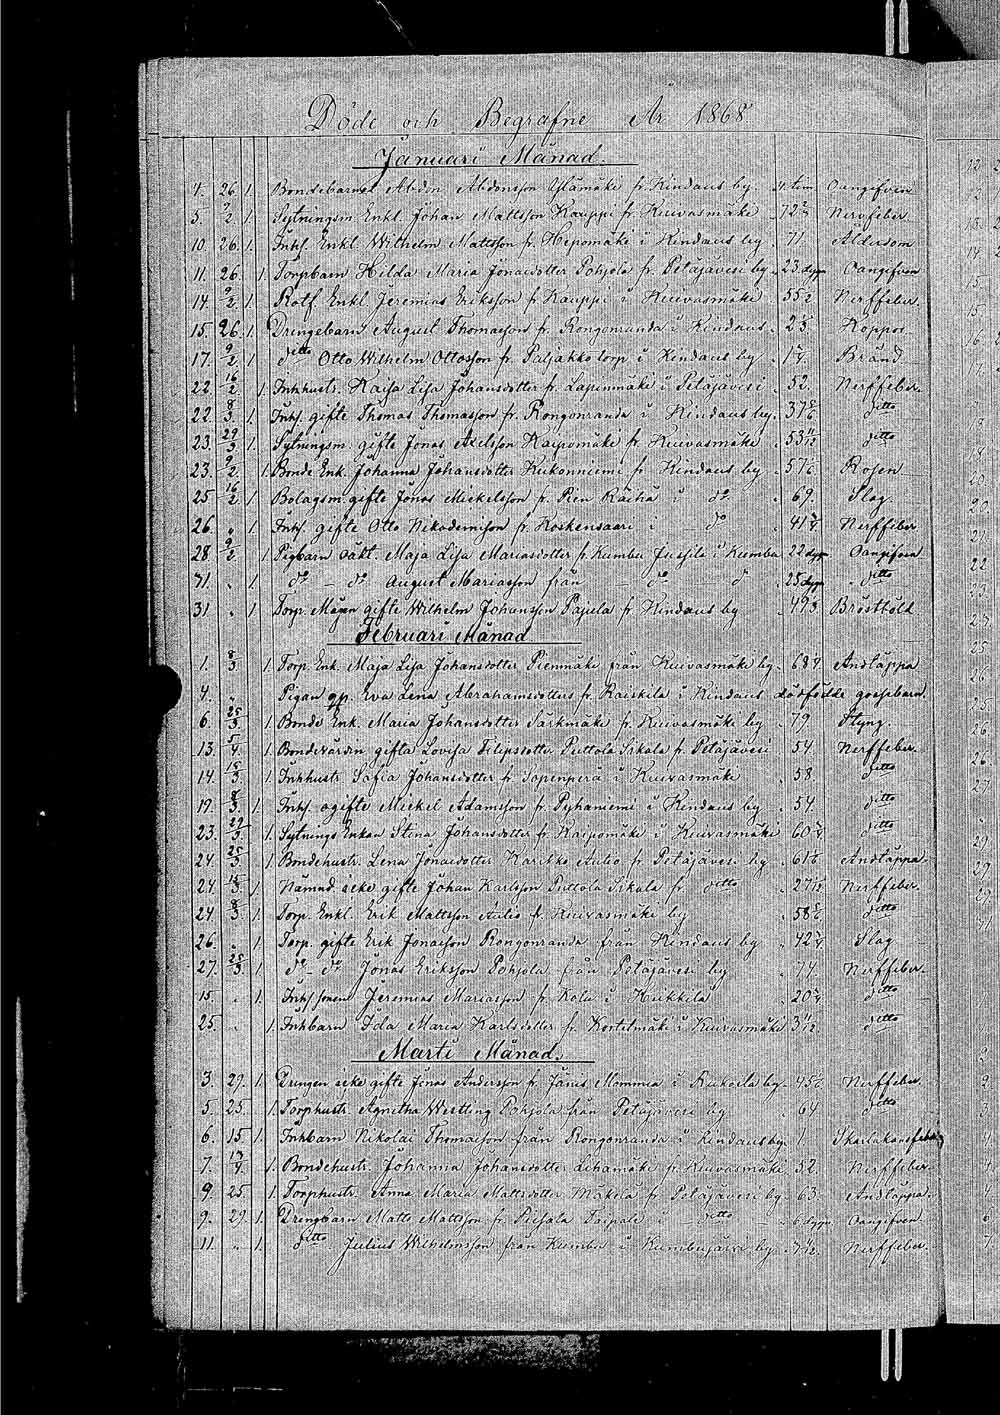 Döde och Begrafne År 1868
Januari Månad.
4. 26. 1. Bondebarnet Abdon Abdonsson Ylämäki fr. Kindaus by 4 tim Oangifven
5. 9/2. 1. Sytningsm. Enkl. Johan Mattsson Kauppi fr. Kuivasmäki 72 Nervfeber.
10. 26. 1. Inhs. Enkl. Wilhelm Mattsson fr. Hepomäki i Kindaus by 71 Ålderdom
11. 26. 1. Torpbarn Hilda Maria Jonaedotter Pohjola fr. Petäjävesi by 23 dygn Oangifven
14. 9/2. 1. Rotf. Enkl. Jeremias Eriksson fr. Kauppi i Kuivasmäki 55 Nerffeber.
15. 26. 1. Drengebarn August Thomasson fr. Rongonranda i Kindaus 2 Koppor
17. 9/2. 1 ditto Otto Wilhelm Ottosson fr. Paljakko torp i Kindaus by 1 Bränd
22. 16/2. 1. Inhhustr. Kaisa Lisa Johansdotter fr. Lapinmäki i Petäjävesi 52. Nerffeber.
22. 8/3. 1. Inhs. gifte Thomas Thomasson fr. Rongonranda i Kindaus by. 37 ditto
23. 29/3. 1. Sytningsm. gifte Jonas Axelsson Kaipomäki fr. Kuivasmäki 53 11/12 ditto
23. 9/2. 1. Bonde Enk. Johanna Johansdotter Kukonniemi fr. Kindaus by 57 Rosen
25 16/2. 1. Bolagsm. gifte Jonas Mickelsson fr. Pien Räihä i do 69. Slag.
26. „ 1. Inhs. gifte Otto Nikodemisson fr. Koskensaari i - do 41 Nerffeber
28. 9/2. 1. Pigbarn oäkt. Maja Lisa Mariasdotter fr. Kumbu Jussila i Kumbu 22 dygn Oangifven
31 „ 1. do - do August Mariasson från - do - d 25 dygn ditto
31 „ 1. Torp. Mågen gifte Wilhelm Johansson Pajula fr. Kindaus by 49 Bröstböld
Februari Månad
1. 8/3. 1. Torp. Enk. Maja Lisa Johansdotter Pienmäki från Kuivasmäki by. 68 Andtäppa
4. „ Pigan Eva Lena Abrahamsdotters fr. Raiskila i Kindaus dödfödde gossebarn
6. 25/3. 1. Bonde Enk. Maria Johansdotter Särkmäki fr. Kuivasmäki by 79 Styng.
13. 5/4. 1. Bondevärdin. gifta Lovisa Filipsdotter Puttola Sikala fr. Petäjävesi 54. Nerffeber.
14. 15/3. 1. Inhhustr. Sofia Johansdotter fr. Sopenperä i Kuivasmäki 58. ditto
19. 1. Inhs. ogifte Mickel Adamsson fr. Pyhäniemi i Kindaus by 54. ditto
23. 29/3. 1. Sytnings Enkan Stina Johansdotter fr. Kaipomäki i Kuivasmäki 60 ditto
24. 25/3. 1. Bondehustr. Lena Jonaedotter Karikko Autio fr. Petäjävesi by 61 Andtäppa.
24. 15/3. 1. Nämnd. icke gifte Johan Karlsson Puttola Sikala fr. ditto 27 Nerffeber.
24. 8/3. 1. Torp. Enkl. Erik Mattsson Autio fr. Kuivasmäki by 58 ditto
26. „ 1. Torp. gifte Erik Jonasson Rongonranda från Kindaus by 42 Slag
27. 25/3. 1 do - do Jonas Eriksson Pohjola från Petäjävesi by 74. Nerffeber.
15. „ 1. Inhs. sonen Jeremias Mariasson fr. Kolu i Keikkilä 20 ditto
25. „ 1. Inhbarn Ida Maria Karlsdotter fr. Kortelmäki i Kuivasmäki 3 ditto
Marti Månad.
3. 29. 1. Drengen icke gifte Jonas Andersson fr. Janis Mommia i Kukoila by. 45 Nerffeber.
5. 25. 1. Torphustr. Agnetha Westling Pohjola från Petäjävesi by 64 ditto
6. 15 1. Inhbarn Nikolai Thomasson från Rongonranda i Kindaus by. 1. Skarlakansfeber
7. 13/4. 1. Bondehustr. Johanna Johansdotter Lehamäki fr. Kuivasmäki 52. Nerffeber.
9. 25 1. Torphustr. Anna Maria Mattsdotter Mäkelä fr. Petäjävesi by. 63. Andtäppa.
9. 29. 1. Drengbarn Matts Mattsson fr. Piesala Taipale i - ditto - 6 dygn. Oangifven
11. „ 1. ditto. Julius Wilhelmsson från Kumbu i Kumbujärvi by 7 Nerffeber.